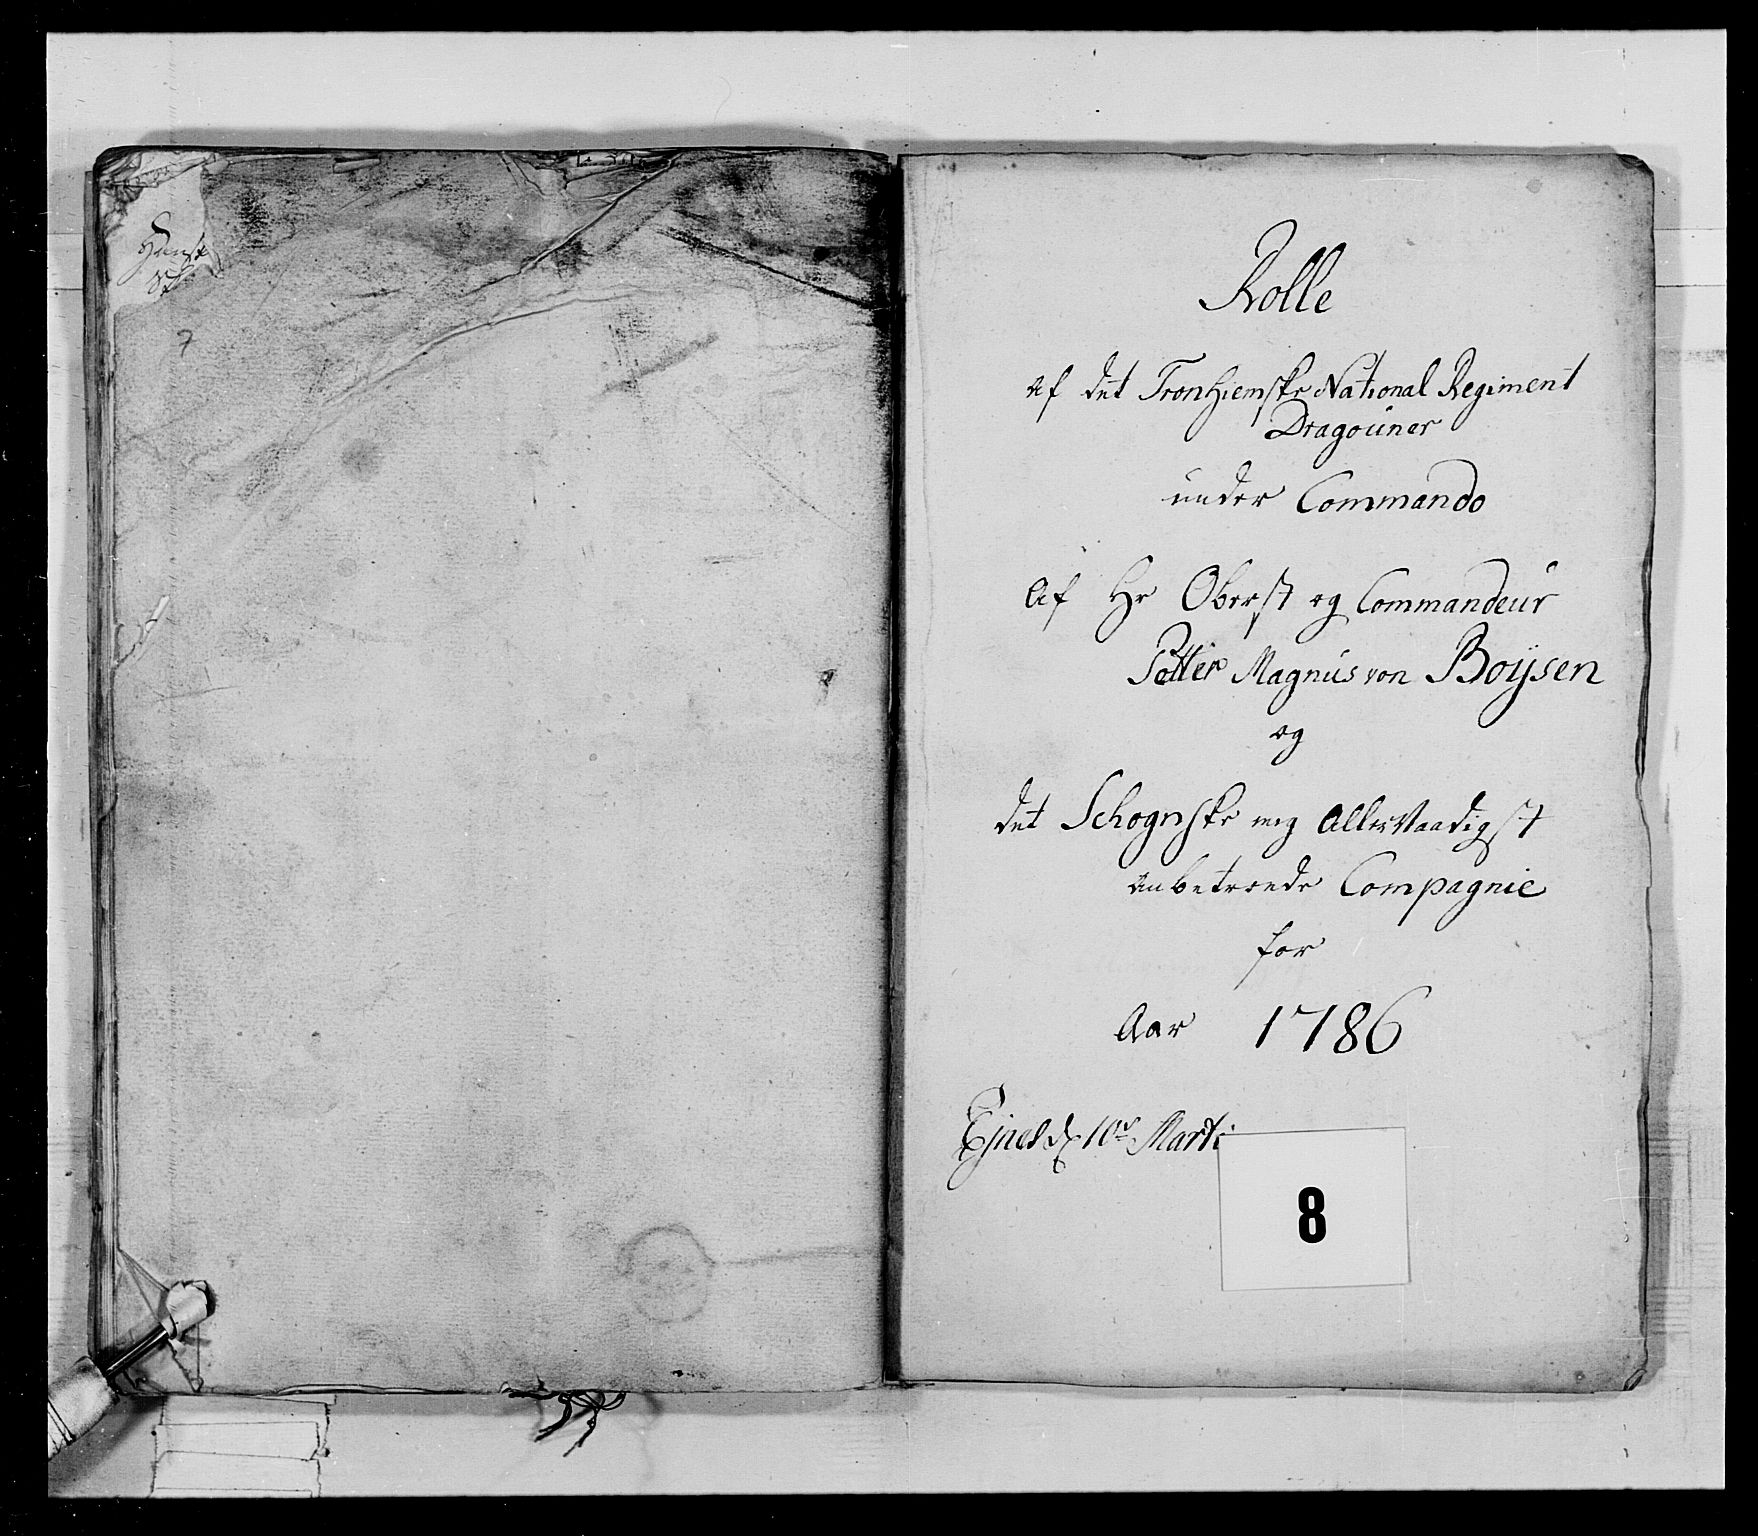 7
Rolle
af det Tronhiemske National Regiment
Dragouner
under Commando
Af Hr Oberst og Commandeur
Petter Magnus von Boijsen
og
det Schognske mig AllerNaadigst
anbetroede Compagnie
for
Aar 1786
10d Marti
8